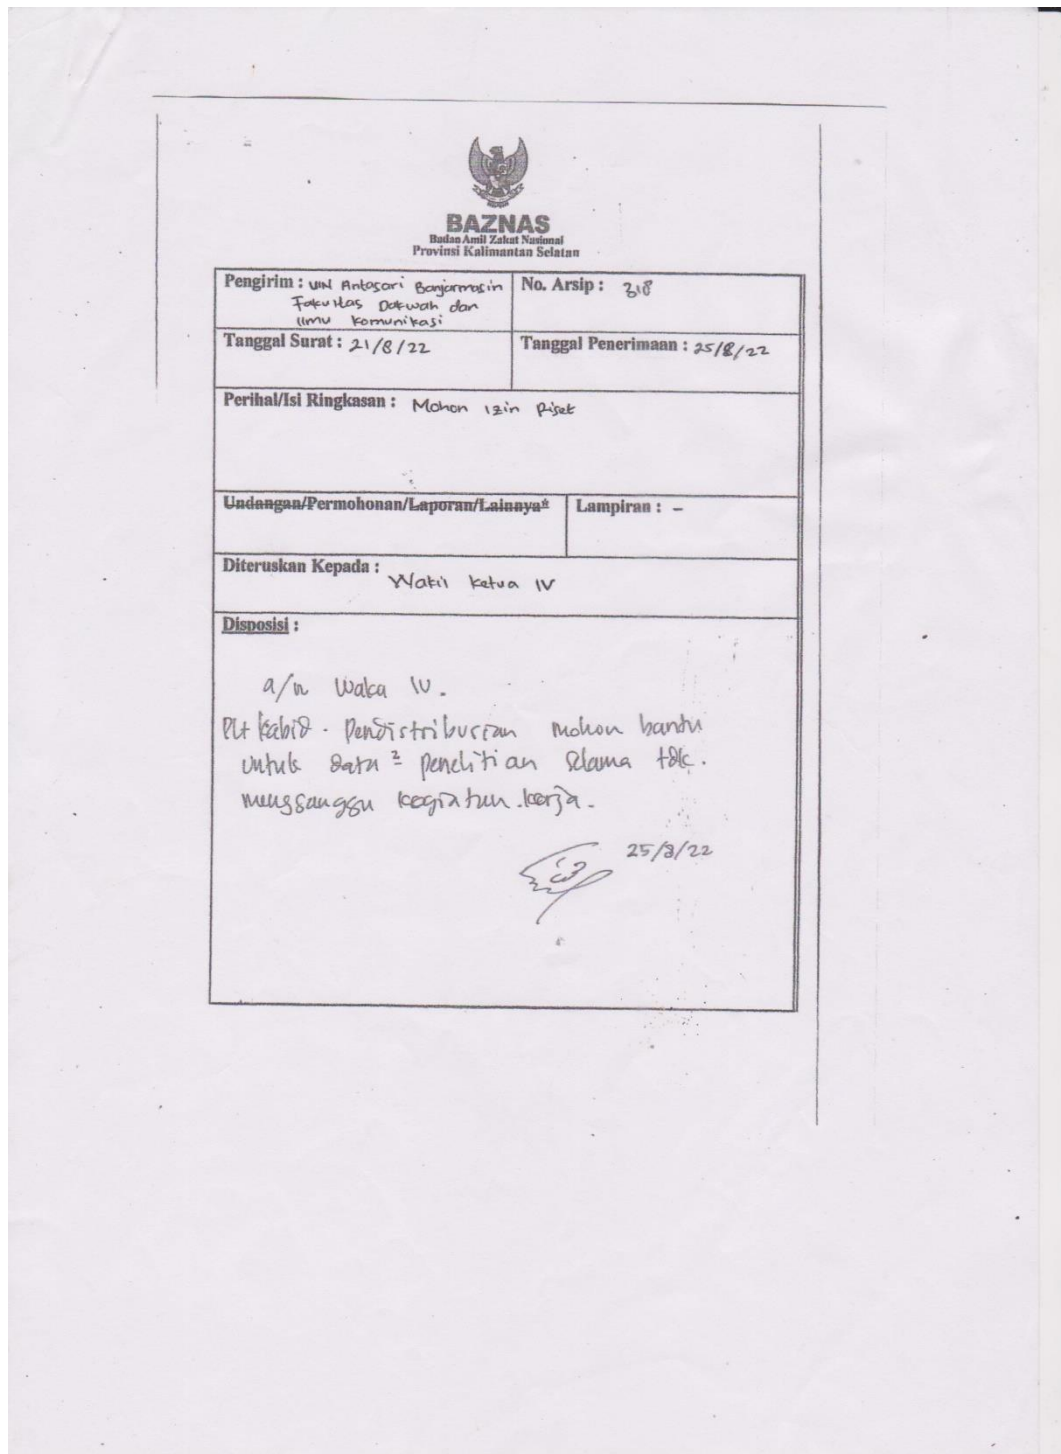 BAZNAS
Badan Amil Zakat Nasional
Provinsi Kalimantan Selatan
Pengirim : UIN Antasari Banjarmasin
Fakultas Dakwah dan
Ilmu Komunikasi
No. Arsip : 318
Tanggal Surat : 21/8/22
Tanggal Penerimaan : 25/8/22
Perihal/Isi Ringkasan : Mohon Izin Riset
Undangan/Permohonan/Laporan/Lainnya*
Lampiran : -
Diteruskan Kepada :
Wakil Ketua IV
Disposisi :
a/n Waka IV.
Plt Kabid. Pendistribusian mohon bantu
untuk data² penelitian selama tdk.
mengganggu kegiatan kerja.
25/8/22